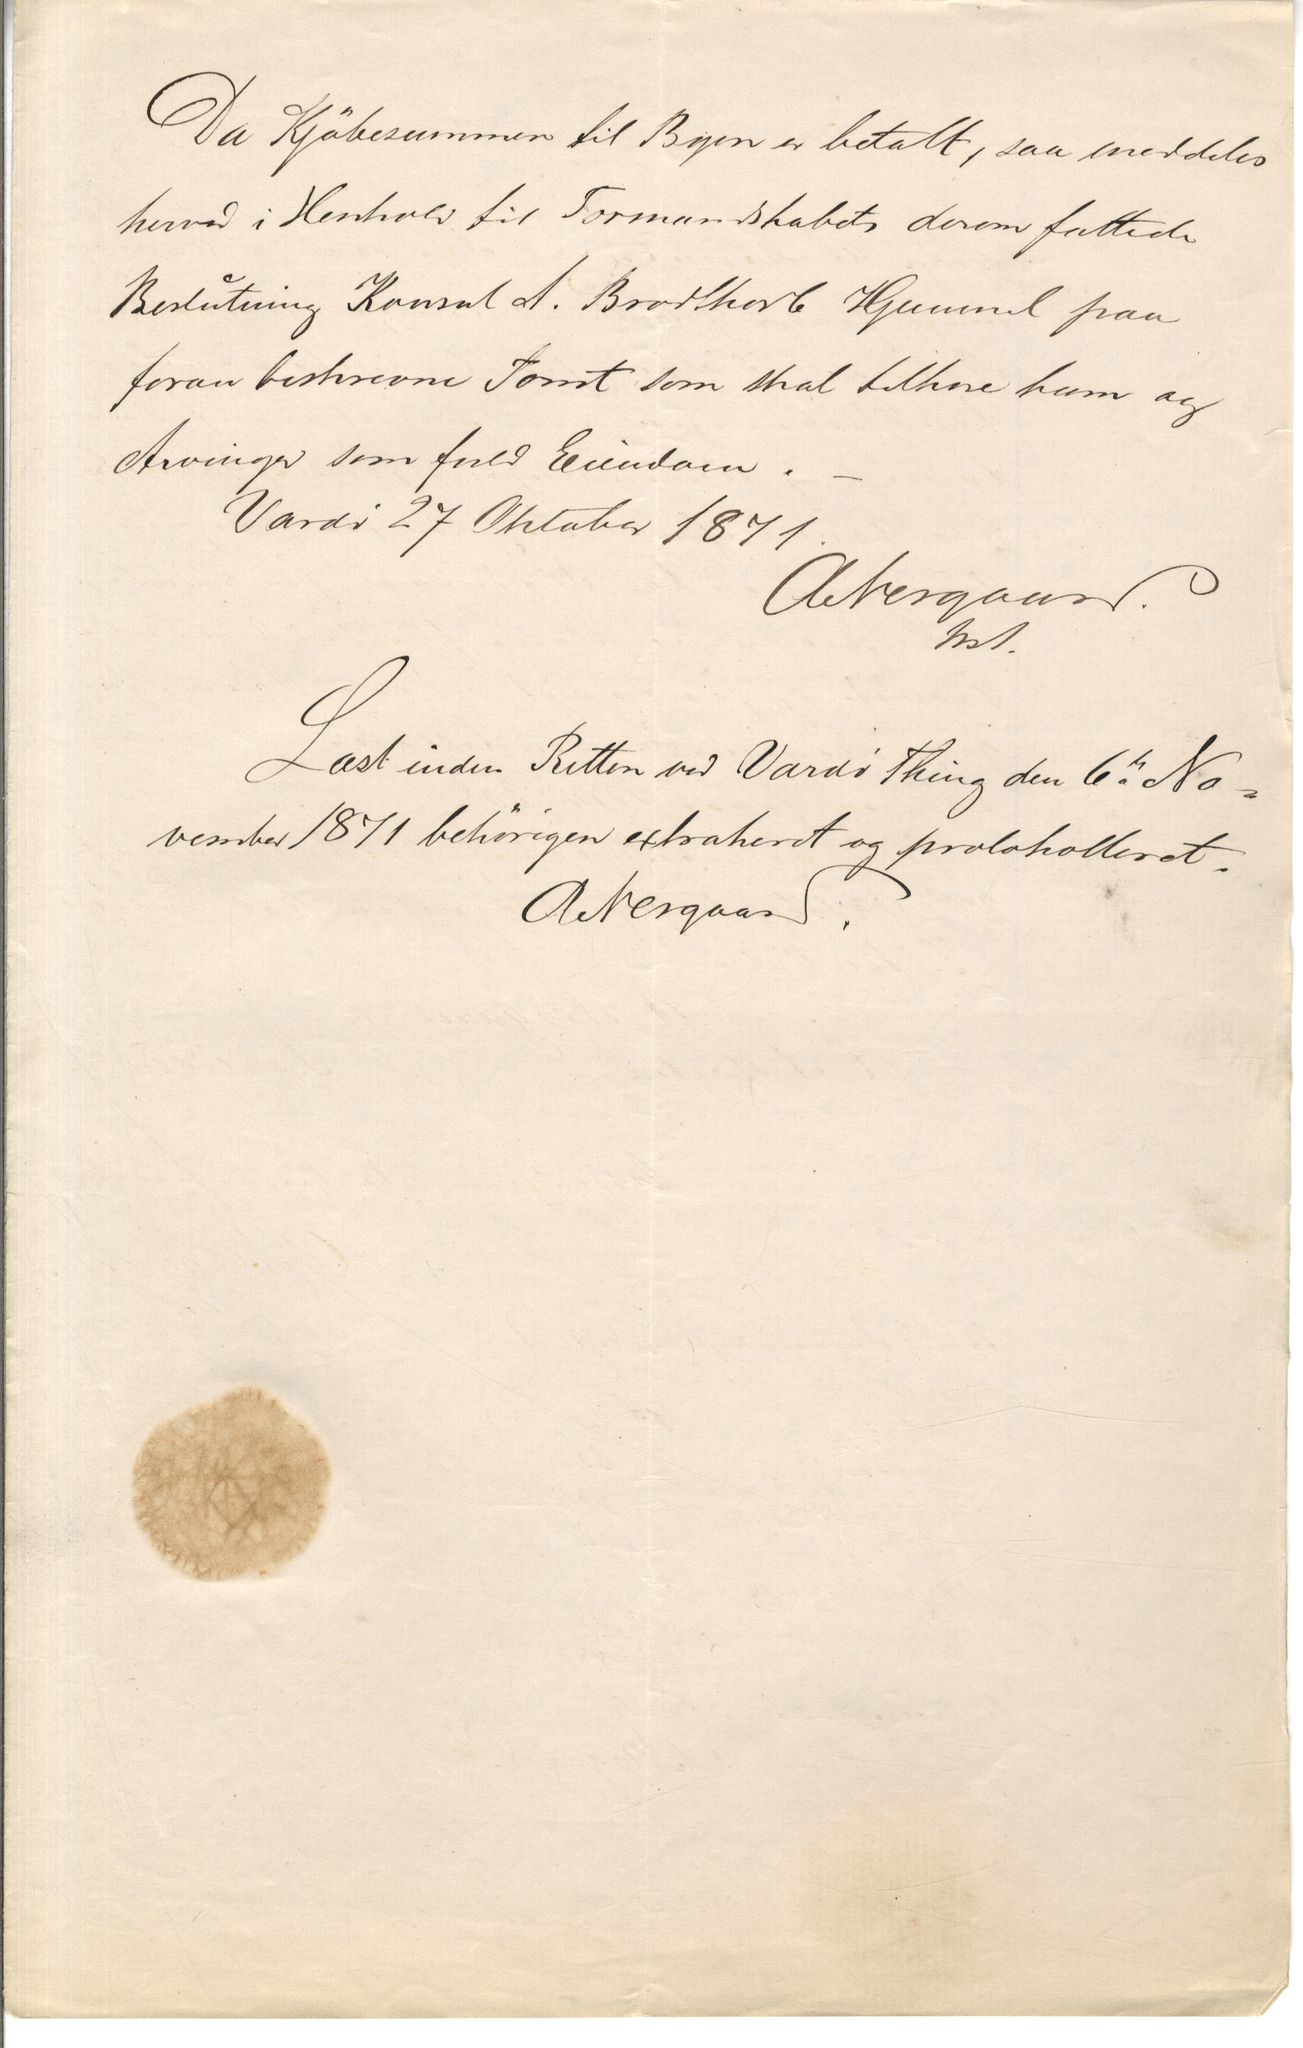 Da Kjöbesummen til Byen er betalt, saa meddeles
herved i Henhold til Formandskabets derom fattede
Beslutning Konsul A. Brodtkorb Hjemmel paa
foran beskrevne Tomt som skal tilhøre ham og
Arvinger som fuld Eiendom. —
Vardö 27 Oktober 1871.
A Nergaard.
Læst inden Retten ved Vardö Thing den 6te No-
vember 1871 behörigen extraheret og protokolleret.
A Nergaard.